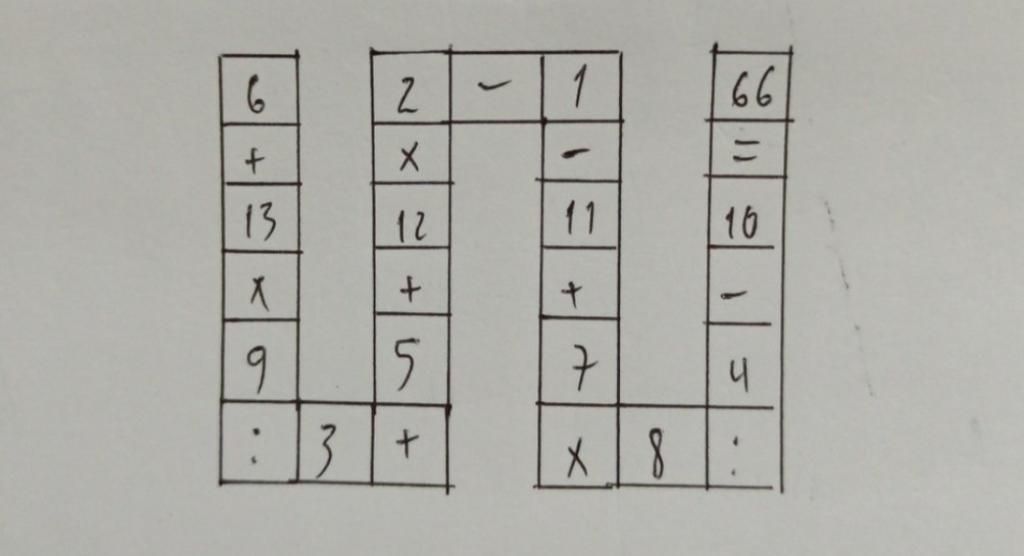 6 2 - 1 66
+ x - =
13 12 11 10
x + + -
9 5 7 4
: 3 + x 8 :